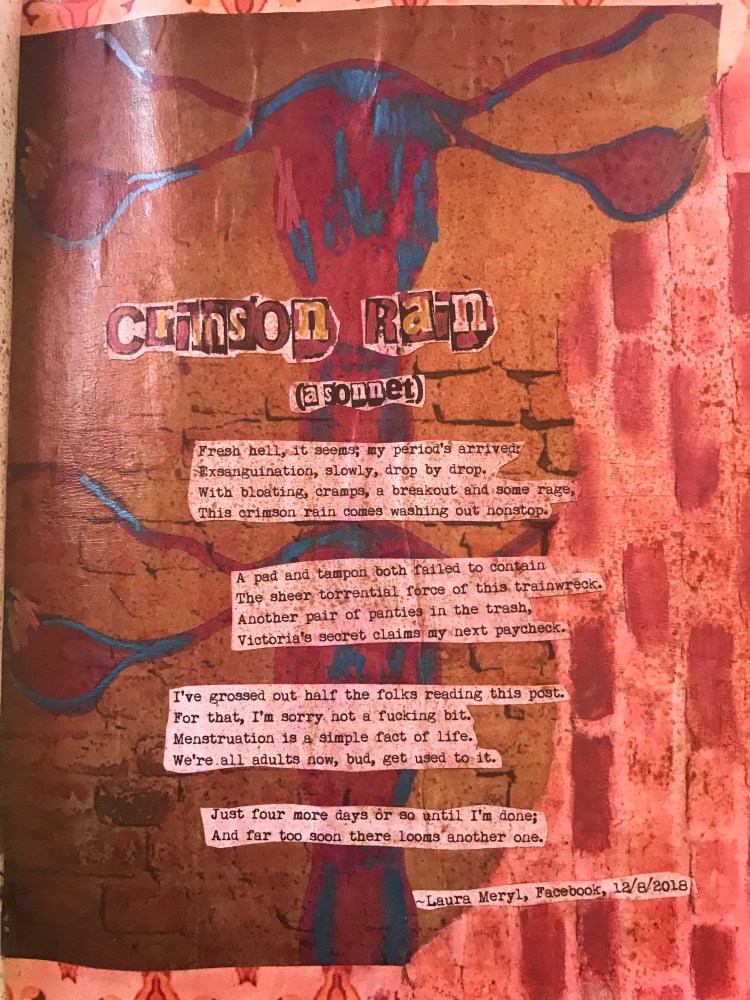 Crimson Rain
(a sonnet)
Fresh hell, it seems; my period's arrived:
Exsanguination, slowly, drop by drop.
With bloating, cramps, a breakout and some rage,
This crimson rain comes washing out nonstop.
A pad and tampon both failed to contain
The sheer torrential force of this trainwreck.
Another pair of panties in the trash,
Victoria's secret claims my next paycheck.
I've grossed out half the folks reading this post.
For that, I'm sorry not a fucking bit.
Menstruation is a simple fact of life.
We're all adults now, bud, get used to it.
Just four more days or so until I'm done;
And far too soon there looms another one.
~Laura Meryl, Facebook, 12/8/2018